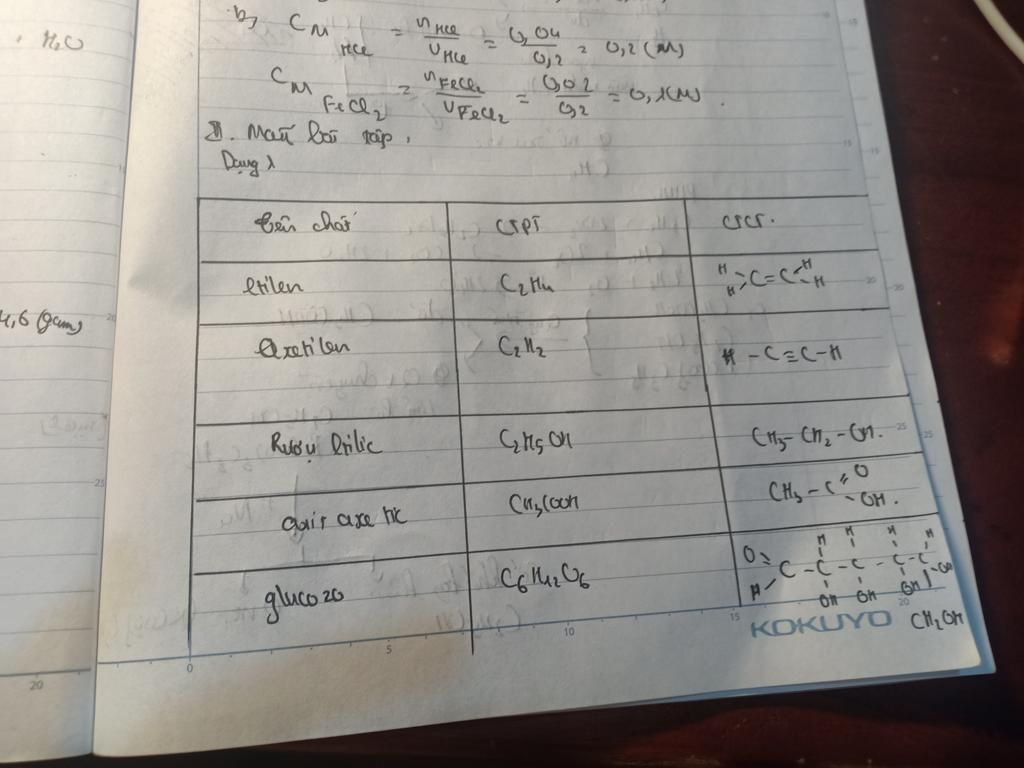 . H2O
4,6 (gam)
b, CM HCl = nHCl/VHCl = 0,04/0,2 = 0,2 (M)
CM FeCl2 = nFeCl2/VFeCl2 = 0,02/0,2 = 0,1(M).
bài tập.
Dạng 1
tên chất CTPT CTCT.
Etilen C2H4 H H C=C H H
Axetilen C2H2 H-C≡C-H
Rượu Etilic C2H5OH CH3-CH2-OH.
axit axetic CH3COOH CH3-C=O -OH.
glucozo C6H12O6 O= H C-C-C-C-C H H H H OH OH OH OH
CH2OH
KOKUYO
0 5 10 15 20
20
25